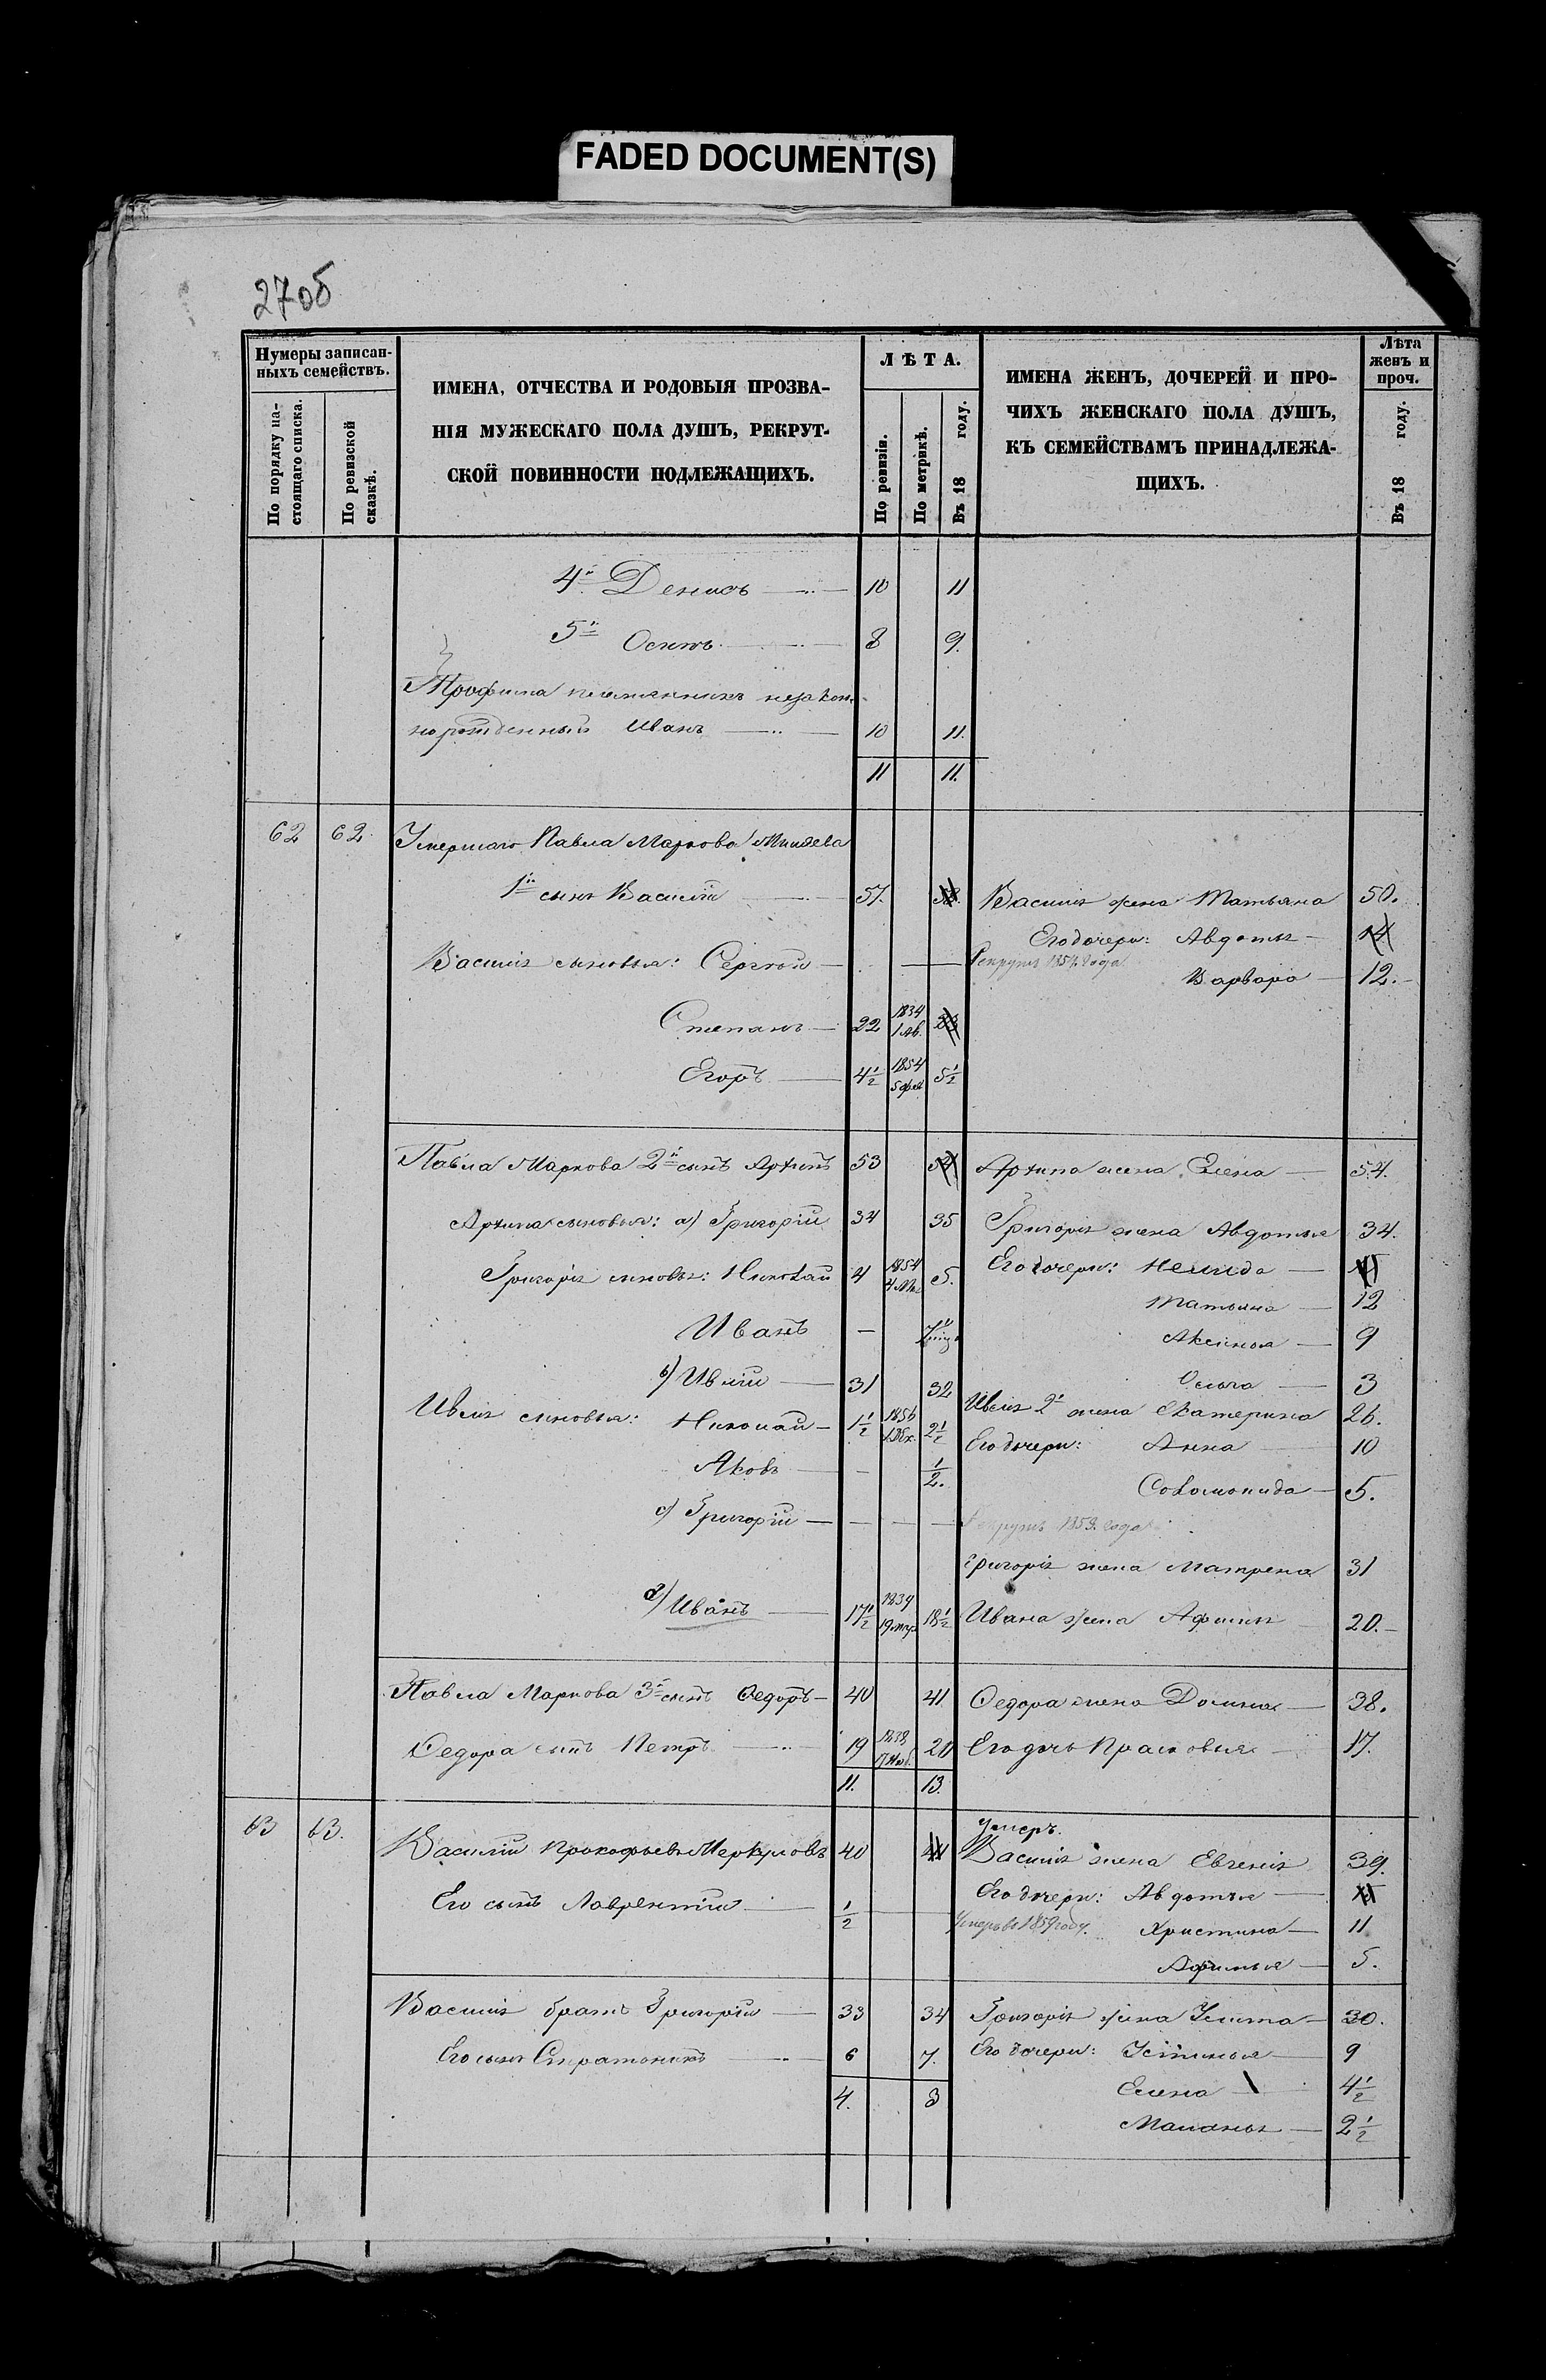 FADED DOCUMENT(S)
270б
Нумеры записан-
ныхъ семействъ.
По порядку на-
стоящаго списка.
По ревизской
сказкѣ.
ИМЕНА, ОТЧЕСТВА И РОДОВЫЯ ПРОЗВА-
НІЯ МУЖЕСКАГО ПОЛА ДУШЪ, РЕКРУТ-
СКОЙ ПОВИННОСТИ ПОДЛЕЖАЩИХЪ.
ЛѢТА.
По ревизіи.
По метрикѣ.
Въ 18 году.
ИМЕНА ЖЕНЪ, ДОЧЕРЕЙ И ПРО-
ЧИХЪ ЖЕНСКАГО ПОЛА ДУШЪ,
КЪ СЕМЕЙСТВАМЪ ПРИНАДЛЕЖА-
ЩИХЪ.
Лѣта
женъ и
проч.
Въ 18 году.
4й Денисъ — 10 11
5й Осипъ — 8 9.
Трофима племянникъ незакон-
норожденный Иванъ — 10 11.
11 11.
62 62. Умершаго Павла Маркова
1й сынъ Василій — 57. Василія жена Татьяна 50.
Его дочери: Авдотья — 14
Василія сыновья: Сергѣй — Рекрутъ 185 года
Варвара — 12.
Степанъ — 22 1834
Егоръ — 4½ 1854 5 фев 5½
Павла Маркова 2й сынъ Архипъ 53 54 Архипа жена Елена — 54.
Архипа сыновья: а) Григорій 34 35 Григорія жена Авдотья 34.
Григорія сыновья: Николай 4 1854 5. Его дочери:
Татьяна — 12
Иванъ — Аксинья — 9
b) Ивлій — 31 32 Ольга — 3
Ивлія сыновья: Николай — 1½ 1856 2½ Ивлія 2я жена Екатерина 26.
Его дочери: Анна 10
Яковъ — ½.
Соломонида — 5.
c) Григорій — Рекрутъ 1853. года
Григорія жена Матрена 31
d) Иванъ — 17½ 1839 18½ Ивана жена Афимья 20.
Павла Маркова 3й сынъ Федоръ — 40 41 Федора жена Домна — 38.
Федора сынъ Петръ — 19 1838 20 Его дочь Прасковья — 17.
11. 13.
63 63. Василій Прокофьевъ Меркуловъ 40 41 Умеръ.
Василія жена Евгенія 39.
Его дочери: Авдотья —
Его сынъ Лаврентій — ½ Умеръ въ 1859 году. Христина — 11
Афимья — 5.
Василія братъ Григорій — 33 34 Григорія жена Улита — 30.
Его сынъ Стратоникъ — 6 7. Его дочери: Устинья — 9
4. 3 Елена — 4½
Маланья — 2½